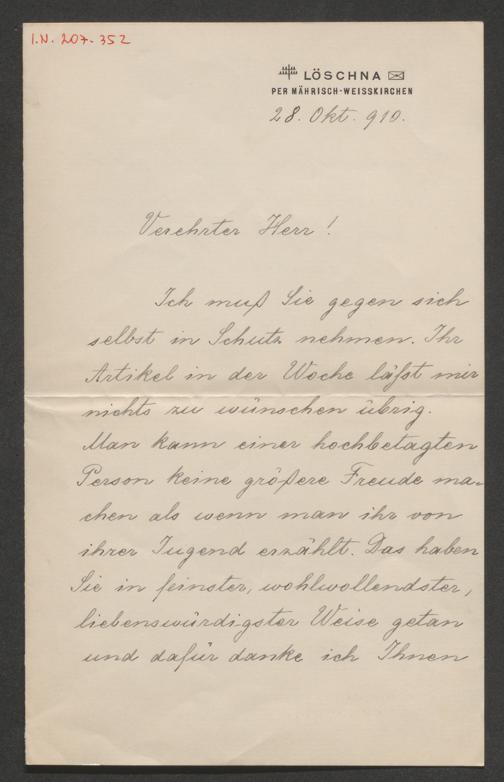 I.N. 207.352
LÖSCHNA
PER MÄHRISCH-WEISSKIRCHEN
28. Okt. 910.
Verehrter Herr!
Ich muß Sie gegen sich
selbst in Schutz nehmen. Ihr
Artikel in der Woche läßt mir
nichts zu wünschen übrig.
Man kann einer hochbetagten
Person keine größere Freude ma-
chen als wenn man ihr von
ihrer Jugend erzählt. Das haben
Sie in feinster, wohlwollendster,
liebenswürdigster Weise getan
und dafür danke ich Ihnen